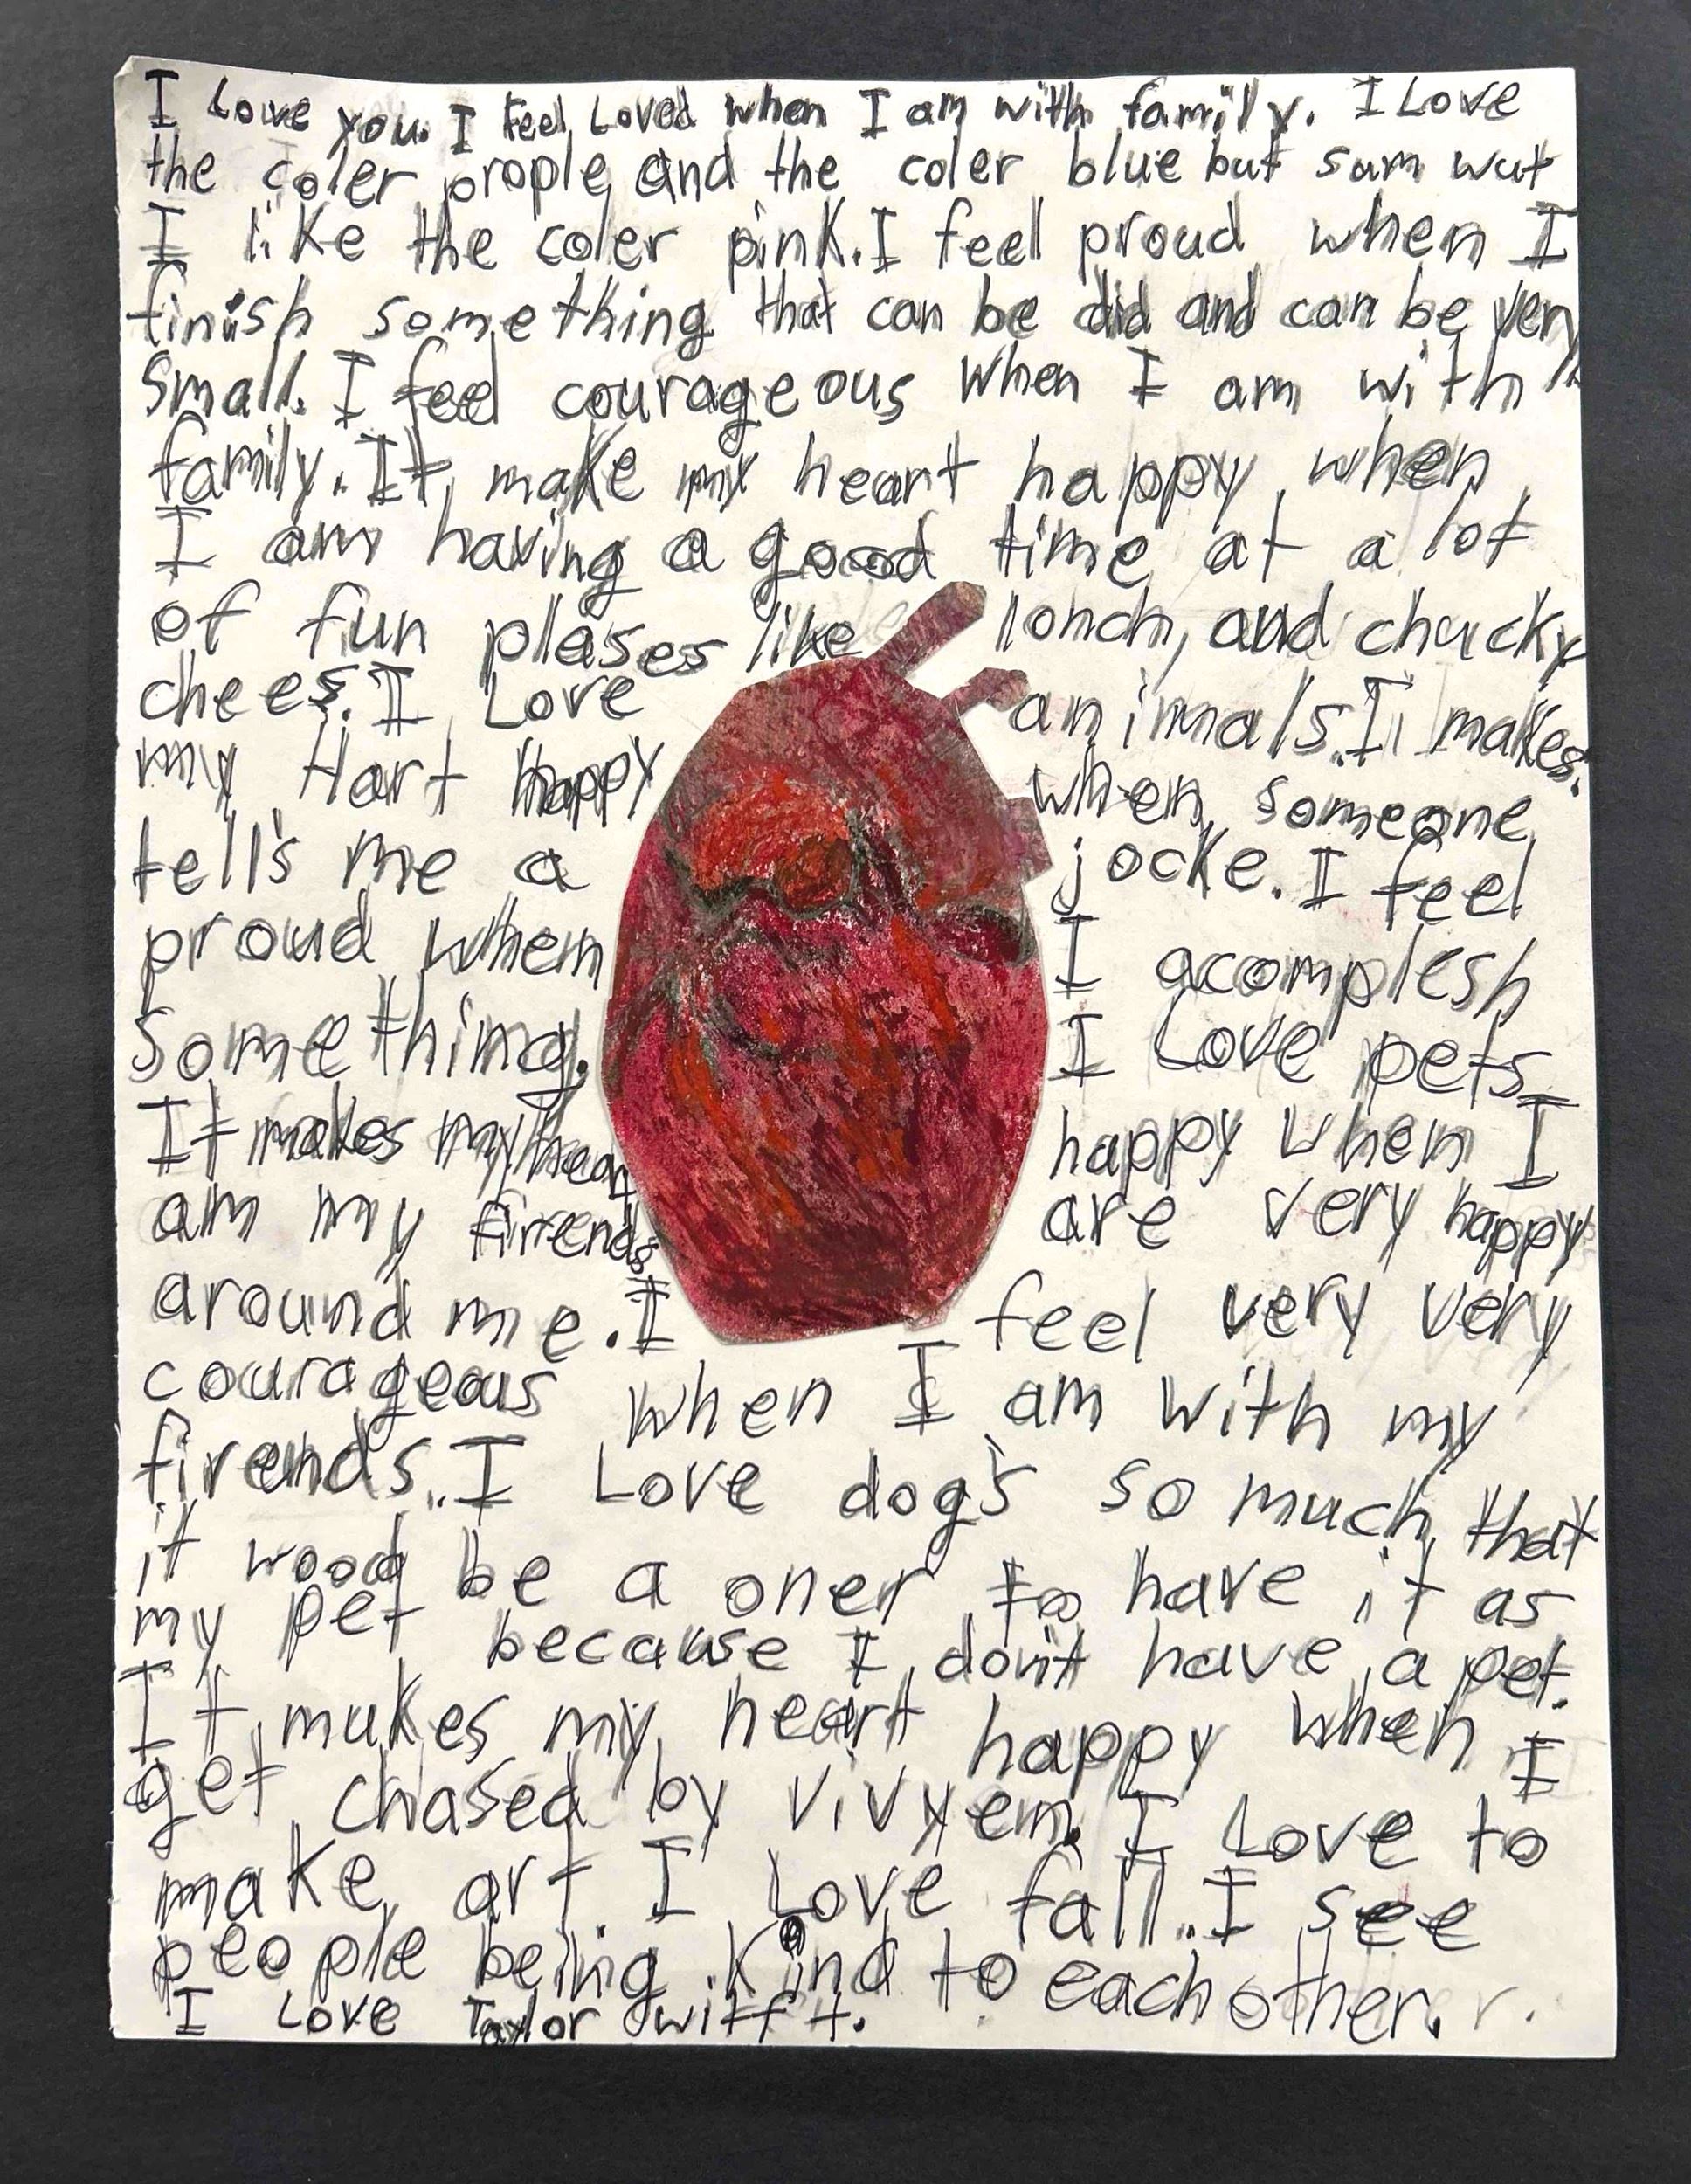 I Love you. I Feel Loved when I am with family. I Love
the coler prople and the coler blue but sum wut
I like the coler pink. I feel proud when I
finish something that can be did and can be very
small. I feel courageous when I am with
family. It make my heart happy when
I am having a good time at a lot
of fun plases like lonch, and chucky
chees. I Love animals. I makes
my Hart happy when someone
tell's me a jocke. I feel
proud when I acomplesh
something. I Love pets
It makes my heart happy when I
am my firends are very happy
around me. I feel very very
courageous when I am with my
firends. I Love dog's so much that
it wood be a oner to have it as
my pet because I don't have a pet.
It mukes my heart happy when I
get chased by vivyem. I Love to
make art. I Love fall. I see
people being kind to each other.
I Love Taylor swifft.